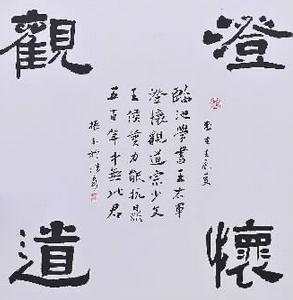 澄懷
觀道
臨池學書王右軍
澄懷觀道宗少文
王侯筆力能扛鼎
五百年來無此君